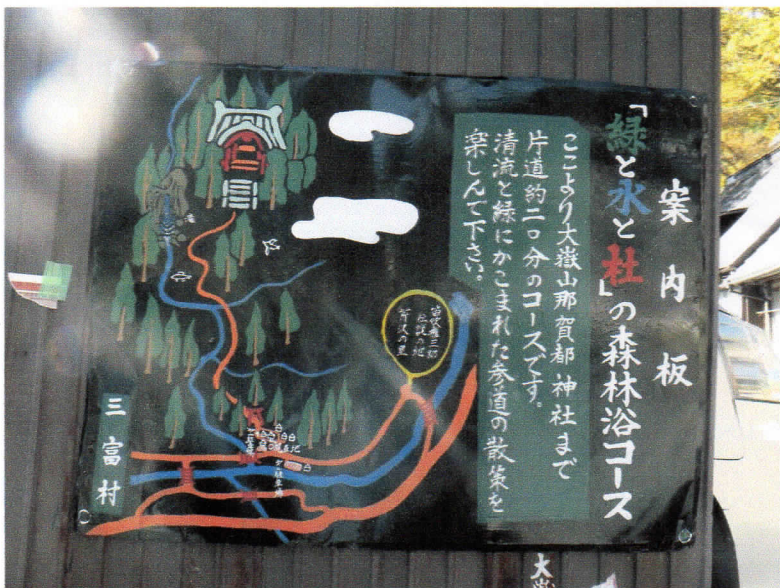 案内板
「緑と水と杜」の森林浴コース
ここより大嶽山那賀都神社まで
片道約二〇分のコースです。
清流と緑にかこまれた参道の散策を
楽しんで下さい。
笛吹権三郎
伝説の地
芹沢の里
三富村
大嶽